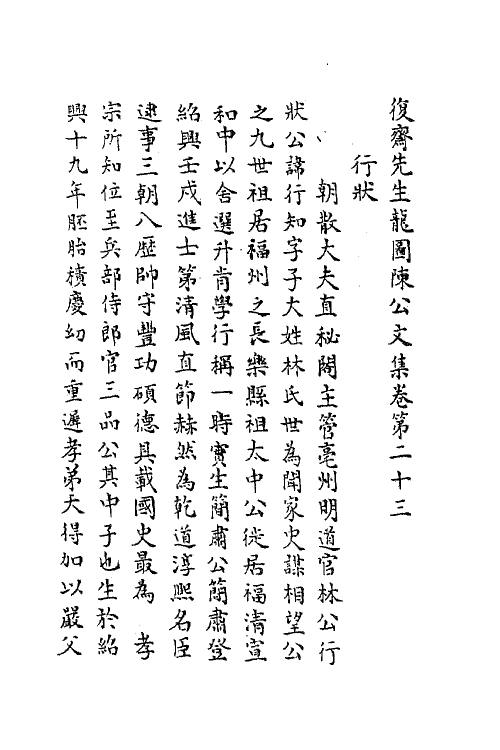 復齋先生龍圖陳公文集卷第二十三
行狀
朝散大夫直秘閣主管亳州明道宫林公行
狀公諱行知字子大姓林氏世為聞家史諜相望公
之九世祖居福州之長樂縣祖太中公徙居福清宣
和中以舍選升肯學行稱一時實生簡肅公簡肅登
紹興壬戌進士第清風直節赫然為乾道淳熙名臣
逮事三朝八歴帥守豐功碩德具載國史最為　孝
宗所知位至兵部侍郎官三品公其中子也生於紹
興十九年胚胎積慶幼而重遲孝弟天得加以嚴父